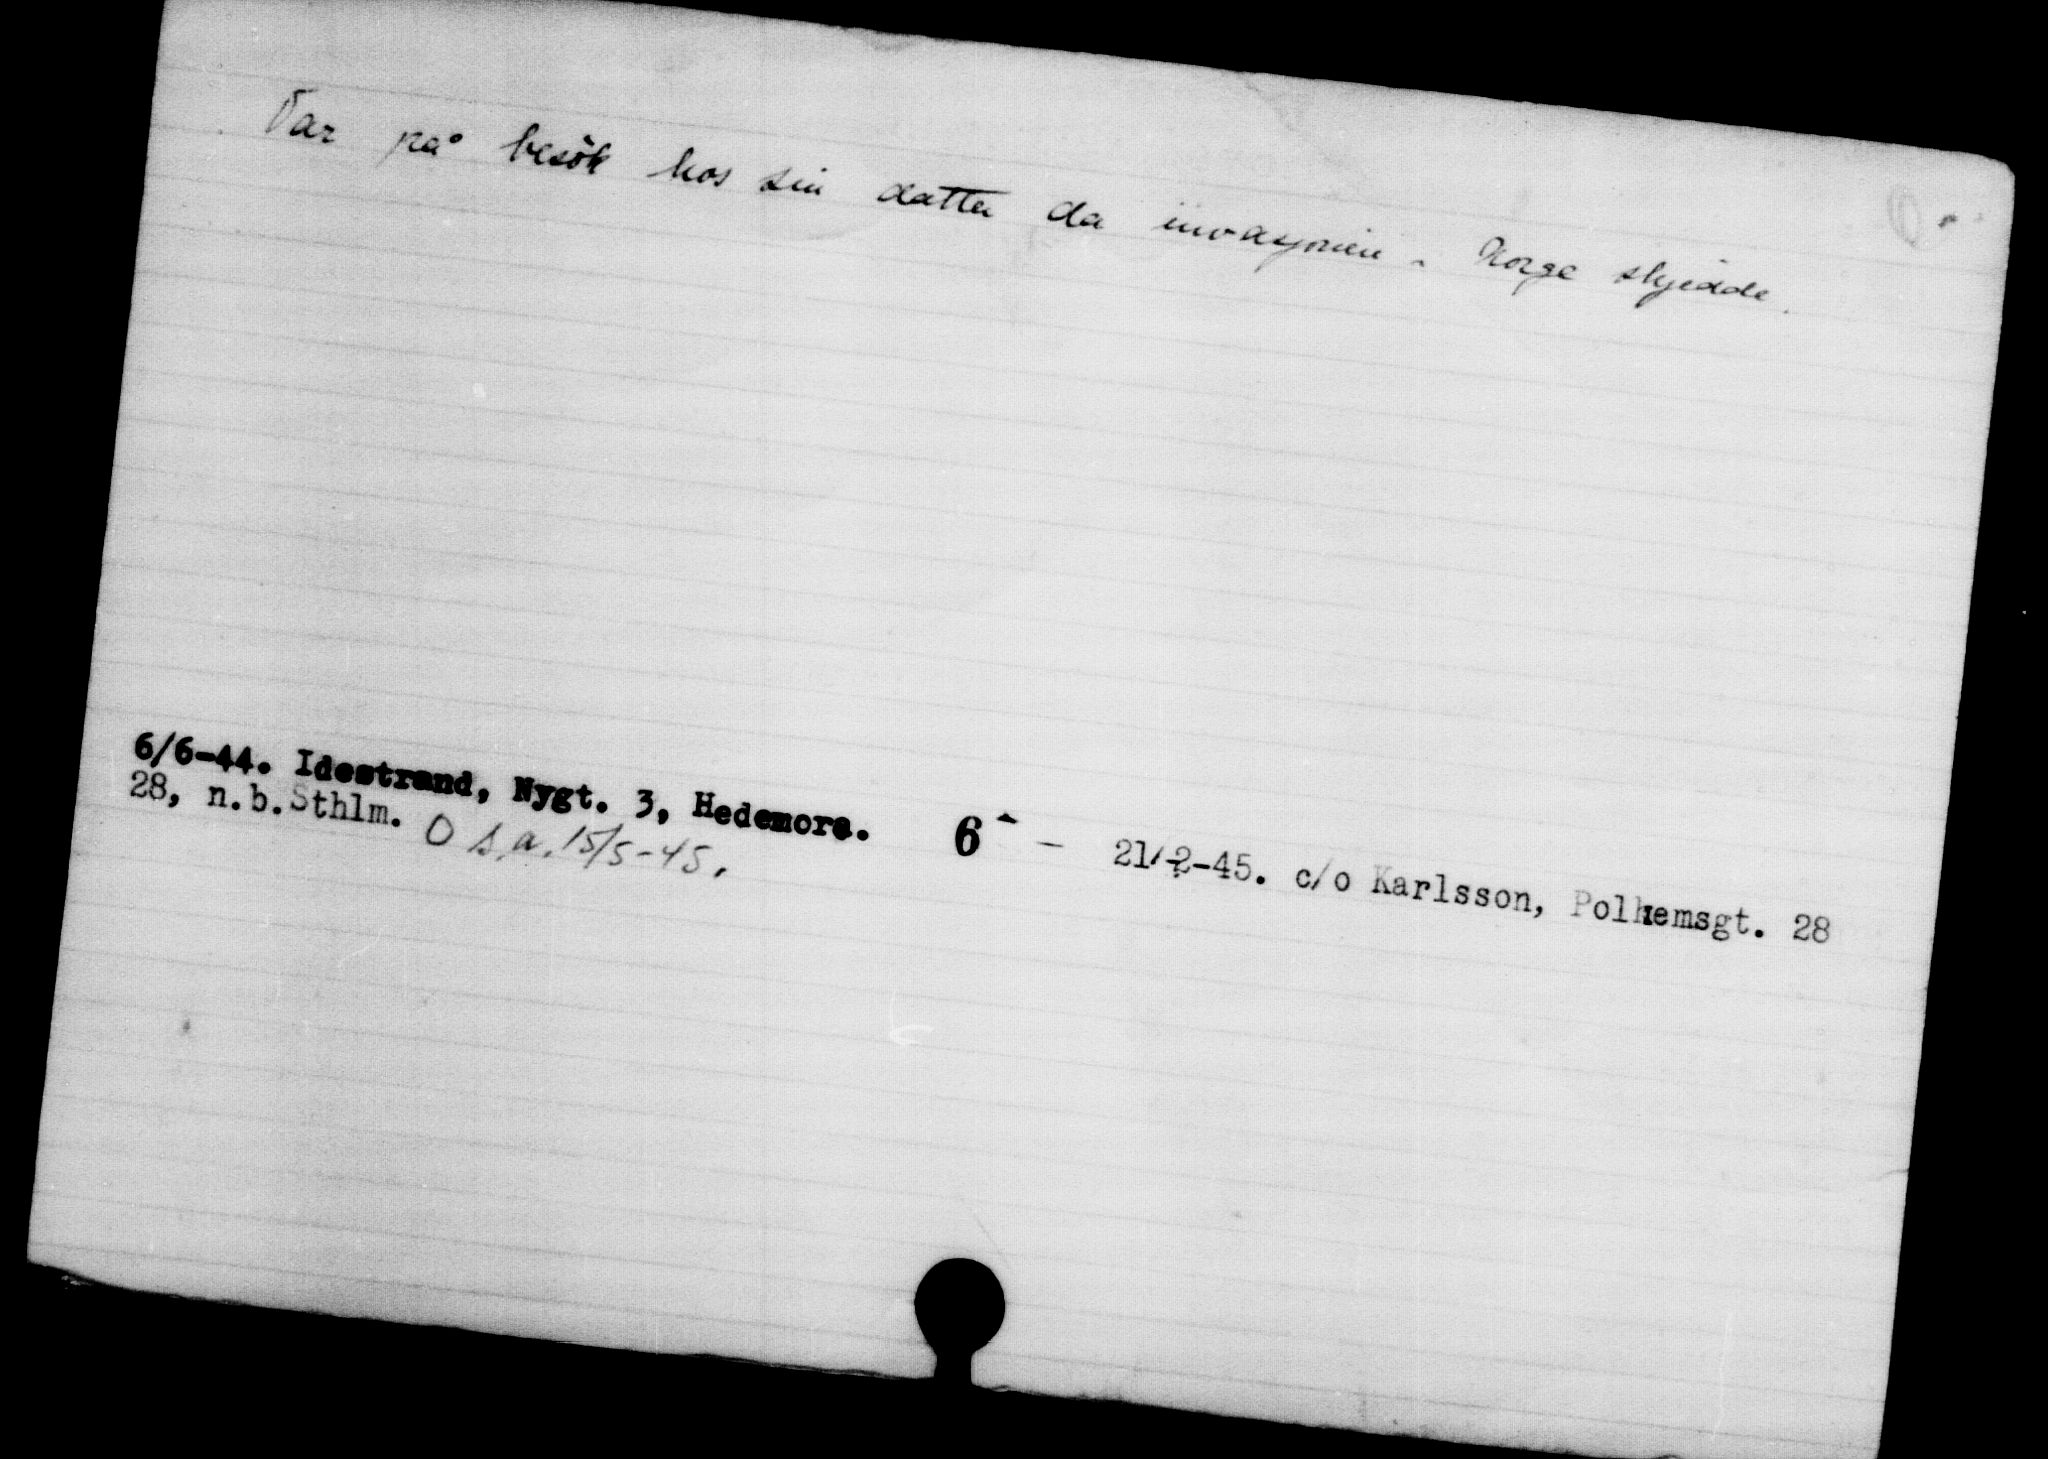 Var på besök hos sin datter da invasjonen i Norge skjedde.
6/6-44. Idestrand, Nygt. 3, Hedemora. 6 - 21/2-45. c/o Karlsson, Polhemsgt. 28
28, n.b.Sthlm. O s.a. 15/5-45.